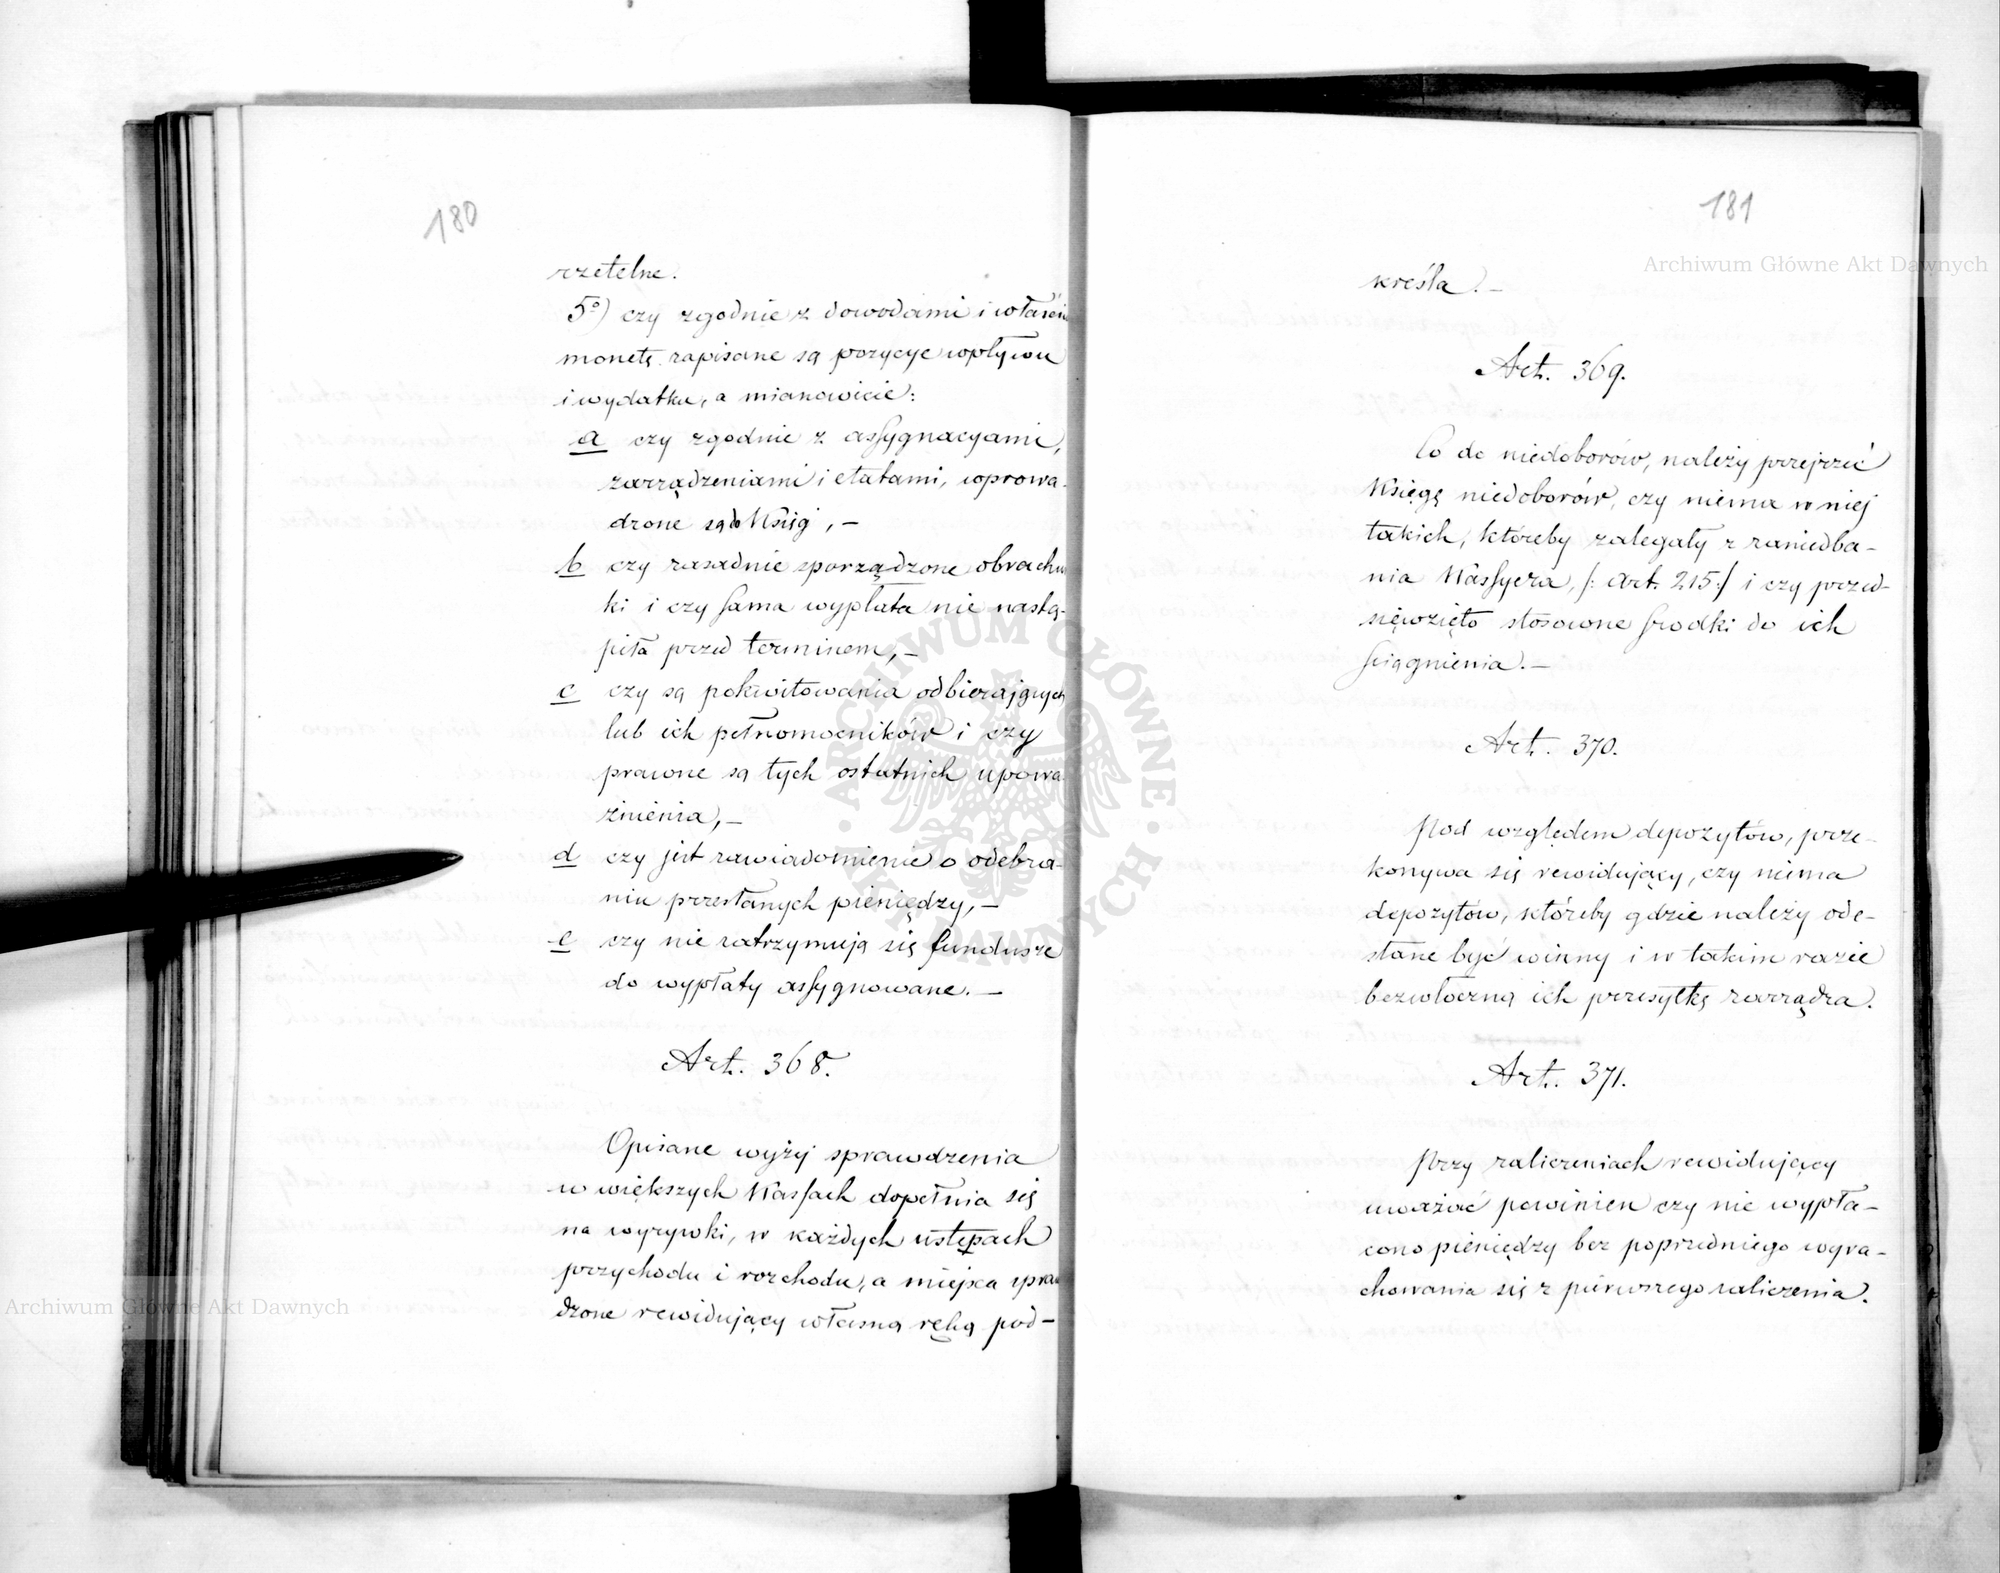 180
rzetelne.
5º) czy zgodnie z dowodami i właści
monetę zapisane są pozycye wpływu
i wydatku, a mianowicie:
a czy zgodnie z assygnacyami,
zarządzeniami i etatami, wprowa-
dzone są do Ksiąg, —
b czy zasadnie sporządzone obrachu
ki i czy sama wypłata nie nastą-
piła przed terminem, —
c czy są pokwitowania odbierających
lub ich pełnomocników i czy
prawne są tych ostatnich upowa
żnienia, —
d czy jest zawiadomienie o odebra-
niu przesłanych pieniędzy, —
e czy nie zatrzymują się fundusze
do wypłaty assygnowane. —
Art. 368.
Opisane wyżej sprawdzenia
w większych Kassach dopełnia się
na wyrywki, w każdych ustępach
przychodu i rozchodu, a miejsca spraw
dzone rewidujący własną ręką pod-
181
kreśla. —
Art. 369.
Co do niedoborów, należy przejrzeć
Księgę niedoborów, czy niema w niej
takich, któreby zalegały z zaniedba-
nia Kassyera, /: Art. 215 :/ i czy przed-
sięwzięto stosowne środki do ich
ściągnienia. —
Art. 370.
Pod względem depozytów, prze-
konywa się rewidujący, czy niema
depozytów, któreby gdzie należy ode-
słane być winny i w takim razie
bezwłoczną ich przesyłkę zarządza.
Art. 371.
Przy zaliczeniach rewidujący
uważać powinien czy nie wypła-
cono pieniędzy bez poprzedniego wyra-
chowania się z pierwszego zaliczenia.
Archiwum Główne Akt Dawnych
Archiwum Główne Akt Dawnych
ARCHIWUM GŁÓWNE AKT DAWNYCH